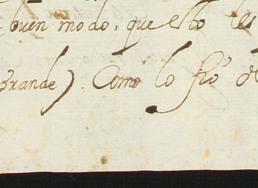 buen modo, que esto les
Grande). Como lo fió de